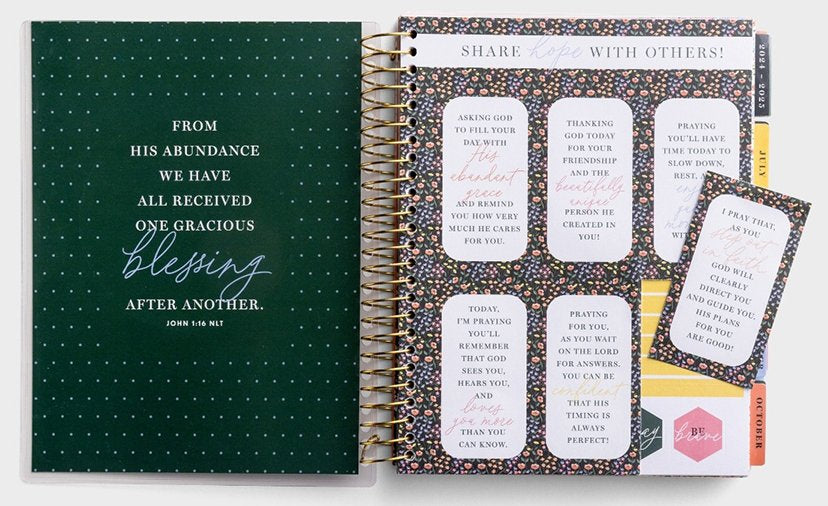 FROM
HIS ABUNDANCE
WE HAVE
ALL RECEIVED
ONE GRACIOUS
blessing
AFTER ANOTHER.
JOHN 1:16 NLT
SHARE hope WITH OTHERS!
ASKING GOD
TO FILL YOUR
DAY WITH
His
abundant
grace
AND REMIND
YOU HOW VERY
MUCH HE CARES
FOR YOU.
THANKING
GOD TODAY
FOR YOUR
FRIENDSHIP
AND THE
beautifully
unique
PERSON HE
CREATED IN
YOU!
PRAYING
YOU'LL HAVE
TIME TODAY TO
SLOW DOWN,
REST,
I PRAY THAT,
AS YOU
step out
in faith
GOD WILL
CLEARLY
DIRECT YOU
AND GUIDE YOU.
HIS PLANS
FOR YOU
ARE GOOD!
TODAY,
I'M PRAYING
YOU'LL
REMEMBER
THAT GOD
SEES YOU,
HEARS YOU,
AND
loves
you more
THAN YOU
CAN KNOW.
PRAYING
FOR YOU,
AS YOU WAIT
ON THE LORD
FOR ANSWERS.
YOU CAN BE
confident
THAT HIS
TIMING IS
ALWAYS
PERFECT!
BE
brave
2024 – 2025
JULY
OCTOBER